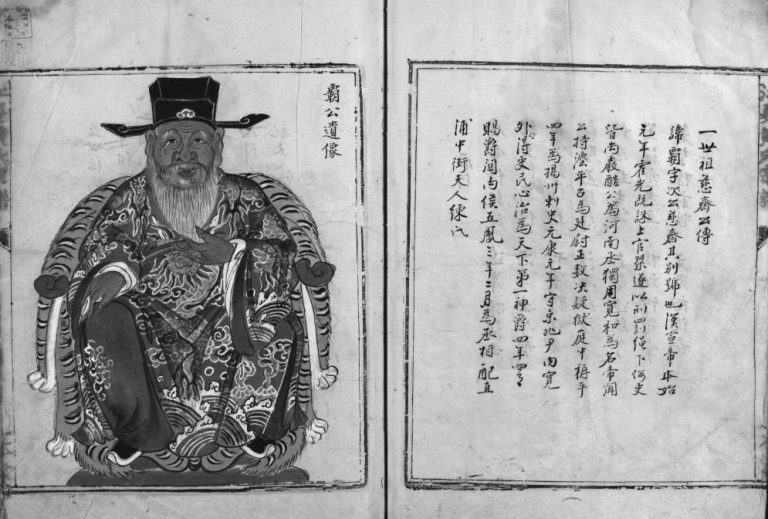 一世祖慈齋公傳
諱霸字次公慈齋其別號也漢宣帝本始
元年霍光既誅上官桀遂以刑罰繩下俗吏
皆尚嚴酷公為河南丞獨用寬和為名帝聞
公持法平召為廷尉正數決疑獄庭中稱平
四年為揚州刺史元康元年守京兆尹內寬
外得吏民心治為天下第一神爵四年四月
賜爵關內侯五鳳三年二月為丞相配直
浦中街夫人練氏
霸公遺像